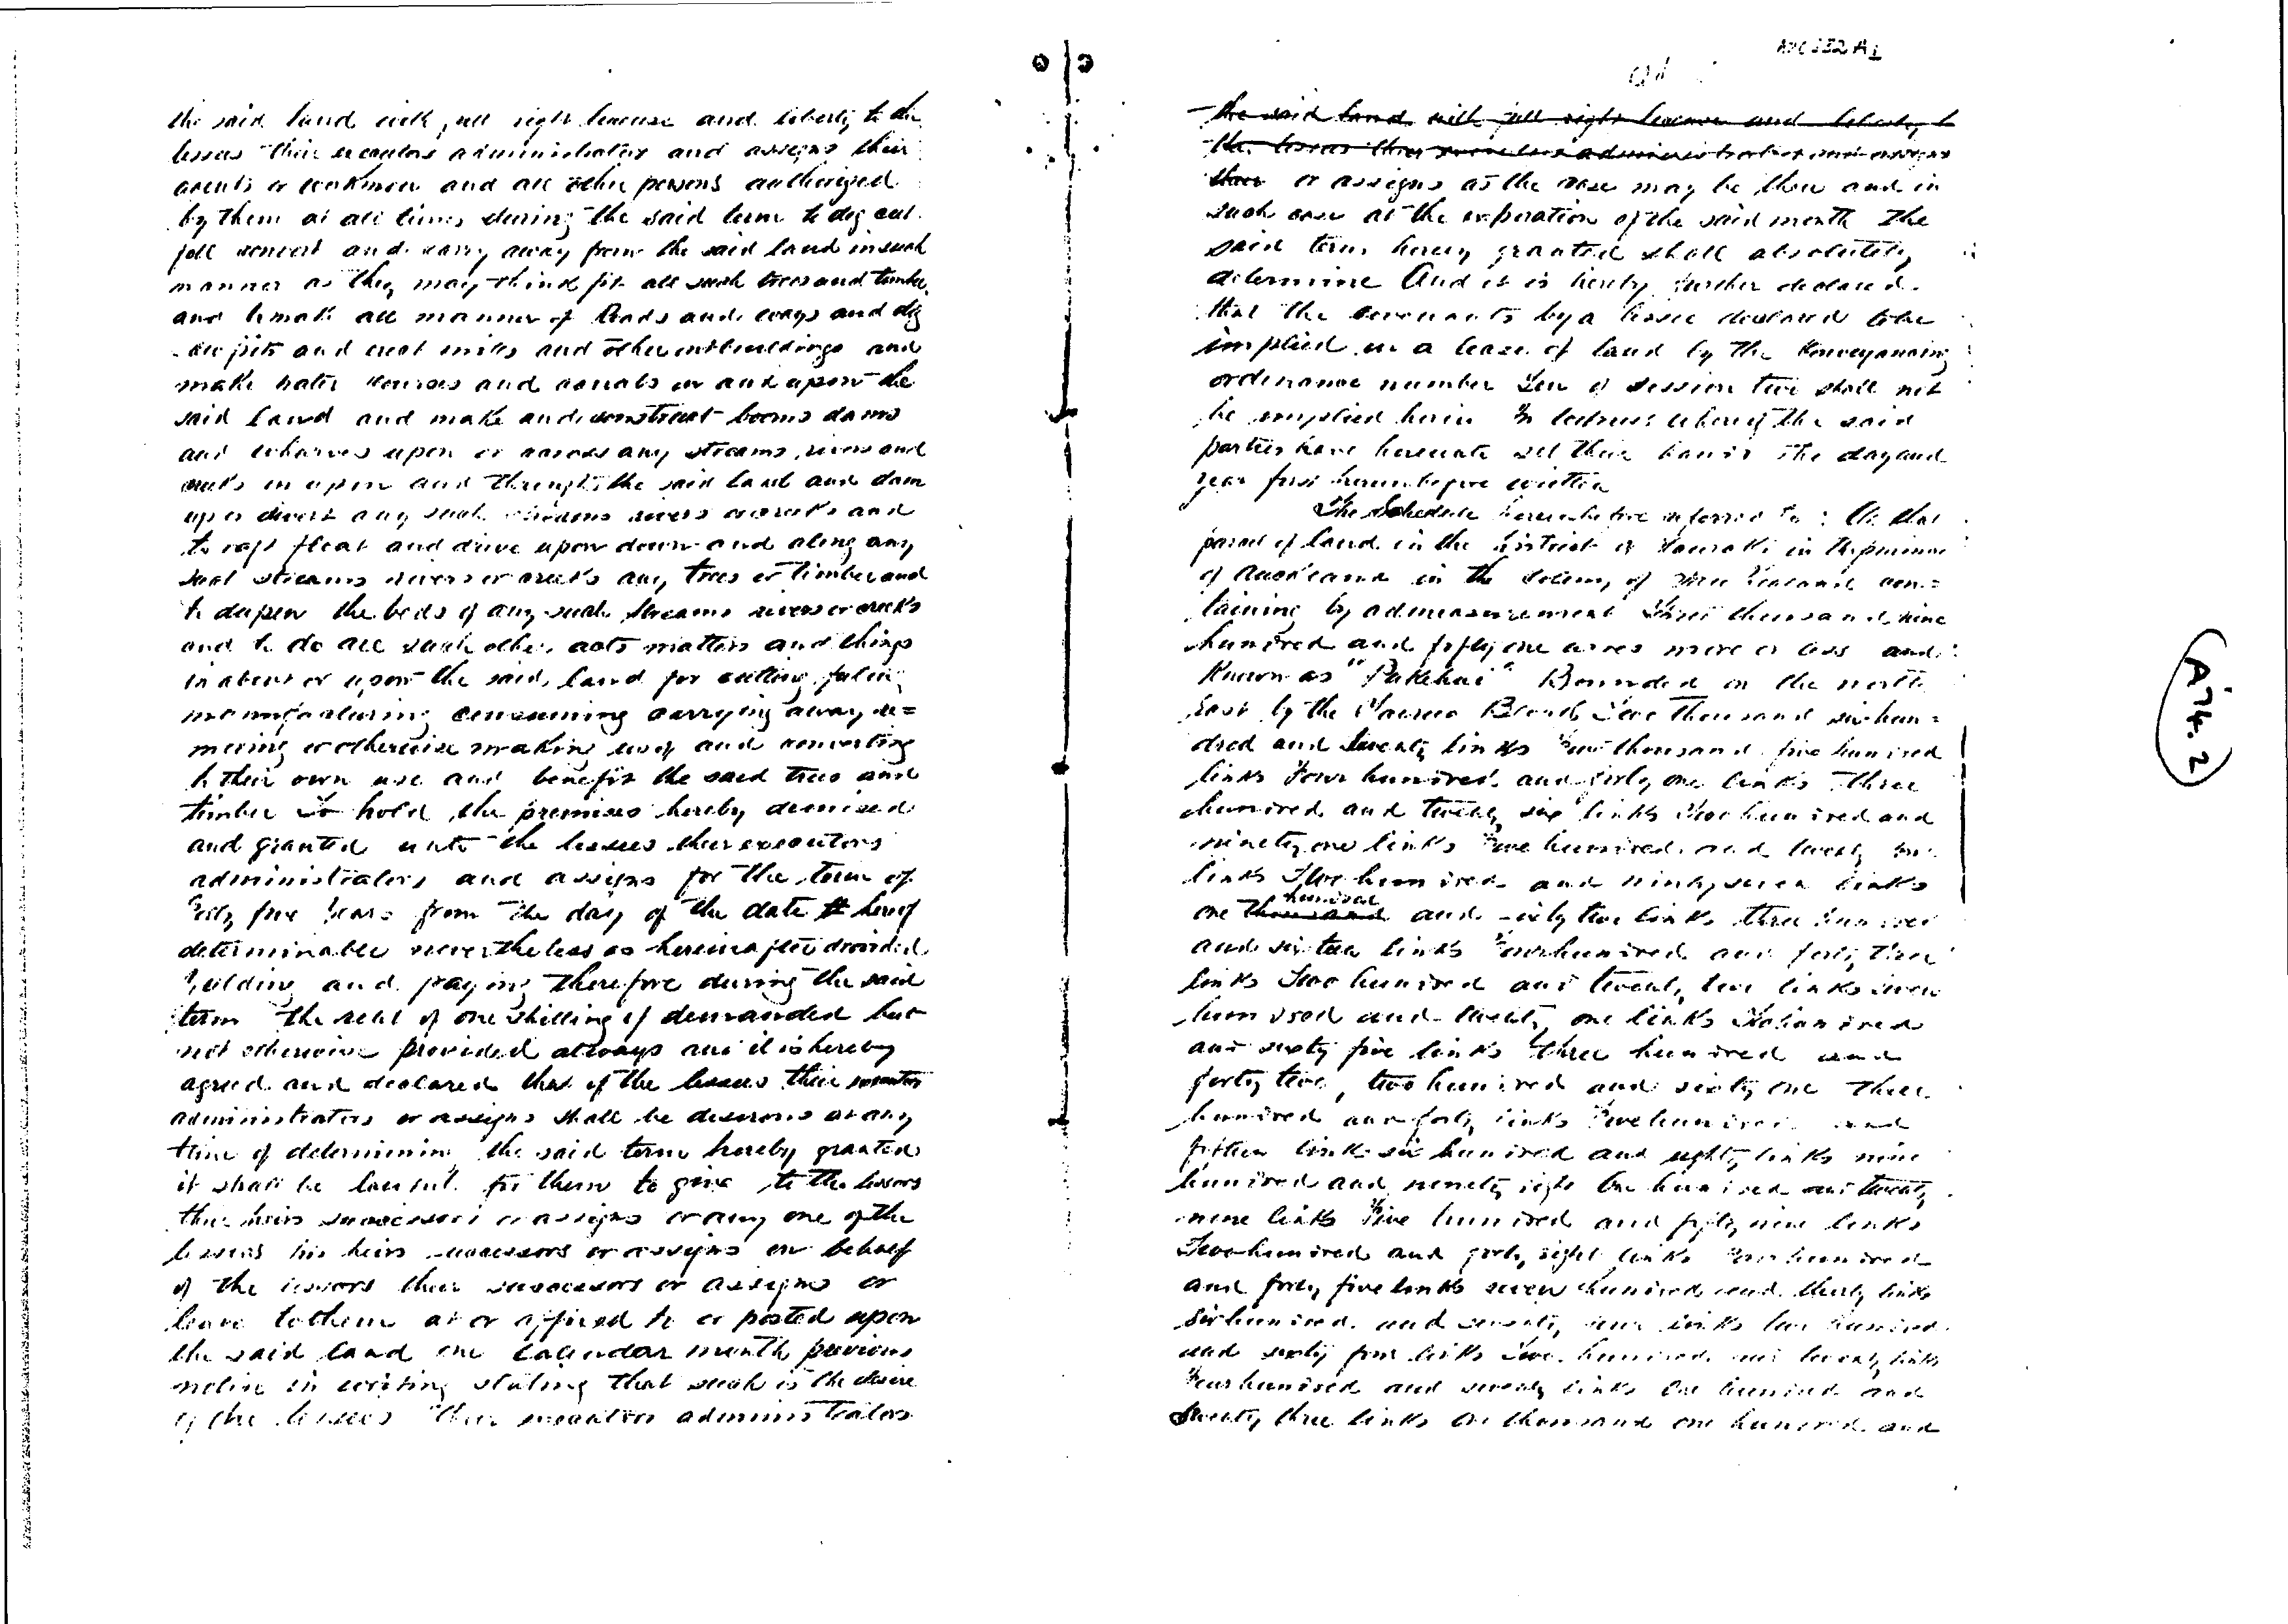 the said land with full right license and liberty to the
lessees their executors administrators and assigns their
agents or workmen and all other persons authorized
by them at all times during the said term to dig cut
fell convert and carry away from the said land in such
manner as they may think fit all such trees and timber
and to make all manner of Roads and ways and dig
saw pits and erect mills and other outbuildings and
make water courses and canals in and upon the
said land and make and construct booms dams
and wharves upon or across any streams rivers and
creeks in upon and through the said land and dam
up or divert any such streams rivers or creeks and
to raft float and drive upon down and along any
such streams rivers or creeks any trees or timber and
to deepen the beds of any such streams rivers or creeks
and to do all such other acts matters and things
in about or upon the said land for cutting falling
manufacturing consuming carrying away re=
moving or otherwise making use of and converting
to their own use and benefit the said trees and
timber To hold the premises hereby demised
and granted unto the lessees their executors
administrators and assigns for the term of
five years from the day of the date hereof
determinable nevertheless as hereinafter provided
Yielding and paying therefore during the said
term the rent of one shilling if demanded but
not otherwise provided always and it is hereby
agreed and declared that if the lessees their executors
administrators or assigns shall be desirous at any
time of determining the said term hereby granted
it shall be lawful for them to give to the lessors
their heirs successors or assigns or any one of the
lessors his heirs successors or assigns on behalf
of the lessors their successors or assigns or
leave to them at or affixed to or posted upon
the said land one Calendar month previous
notice in writing stating that such is the desire
of the lessees their executors administrators
A74.2
the said land with full right license and liberty to
the lessees their executors administrators and assigns
their or assigns as the case may be then and in
such case at the expiration of the said month the
said term hereby granted shall absolutely
determine And it is hereby further declared
that the covenants by a lessee declared to be
implied in a lease of land by the Conveyancing
ordinance number Ten of session two shall not
be implied herein In witness whereof the said
parties have hereunto set their hands the day and
year first hereinbefore written
The Schedule hereinbefore referred to: All that
parcel of land in the district of Hauraki in the province
of Auckland in the Colony of New Zealand con=
taining by admeasurement Three thousand nine
hundred and fifty one acres more or less and
Known as "Pukehai" Bounded on the north
east by the Block Two thousand six hun=
dred and twenty links thousand five hundred
links Four hundred and forty one links three
hundred and twenty six links Two hundred and
ninety one links hundred and twenty
links Two hundred and ninety seven links
one thousand hundred and sixty two links three hundred
and sixteen links Four hundred and forty three
links Two hundred and twenty two links seven
hundred and twenty one links hundred
and sixty five links three hundred and
forty two, two hundred and sixty one three
hundred and forty links Five hundred and
fifteen links six hundred and eighty links nine
hundred and ninety eight One hundred and twenty
nine links Five hundred and fifty nine links
Two hundred and forty eight links Four hundred
and forty five links seven hundred and thirty links
Six hundred and seventy four links two hundred
and sixty four links Two hundred and twenty links
Four hundred and seventy links One hundred and
twenty three links One thousand one hundred and